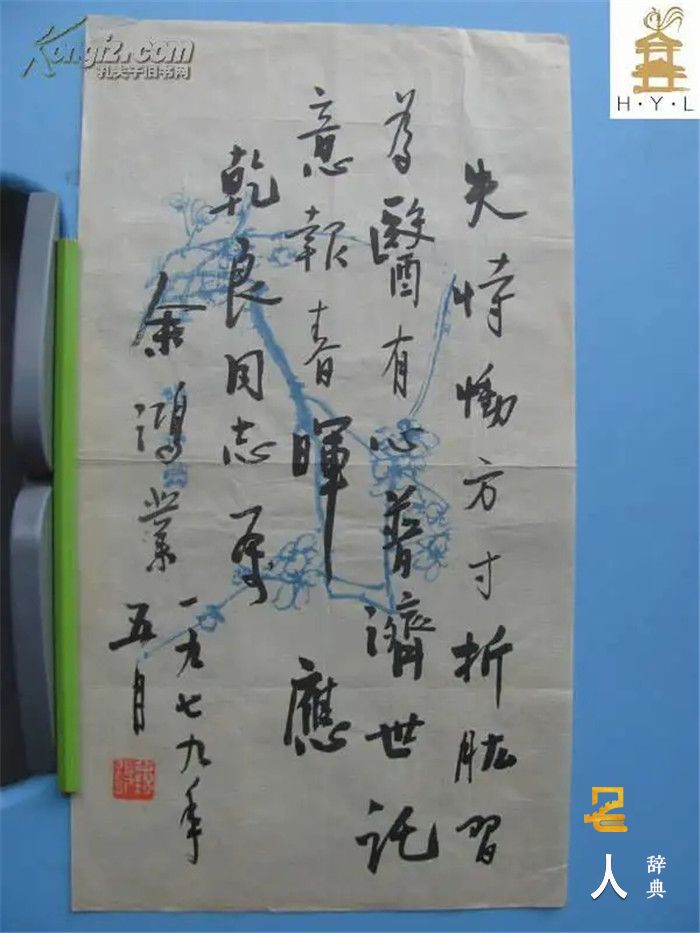 Kongfz.com
孔夫子旧书网
H·Y·L
失恃慟方寸折肱習
為醫有心普濟世託
意報春暉應
乾良同志属
余鴻業一九七九年
五月
人
辞典